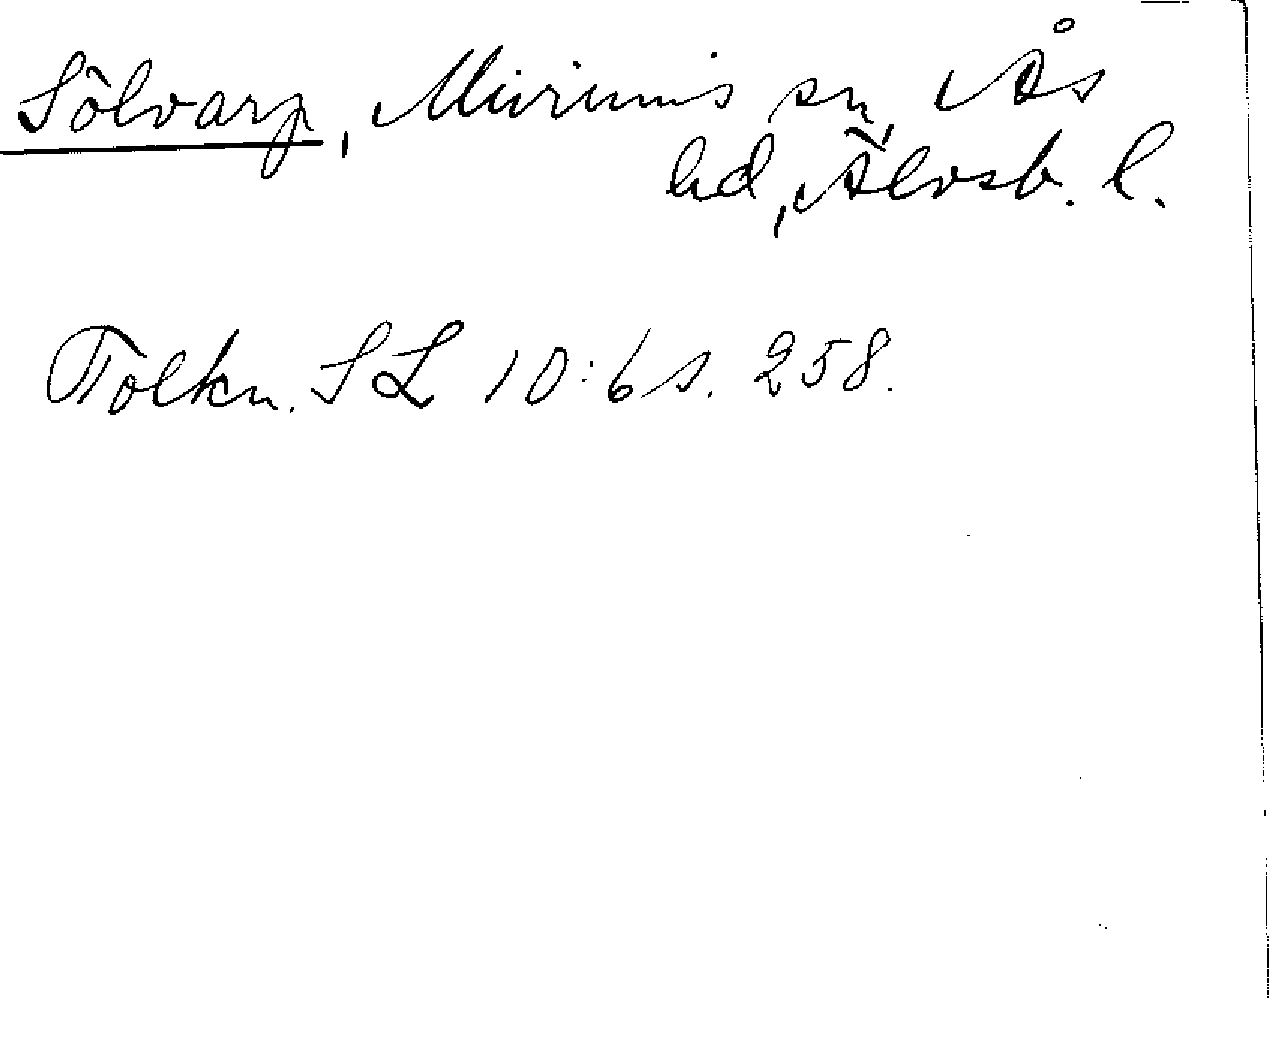 Sölvarp, Murums sn, Ås
hd, Älvsb. l.
Tolkn. SL 10:6 s. 258.